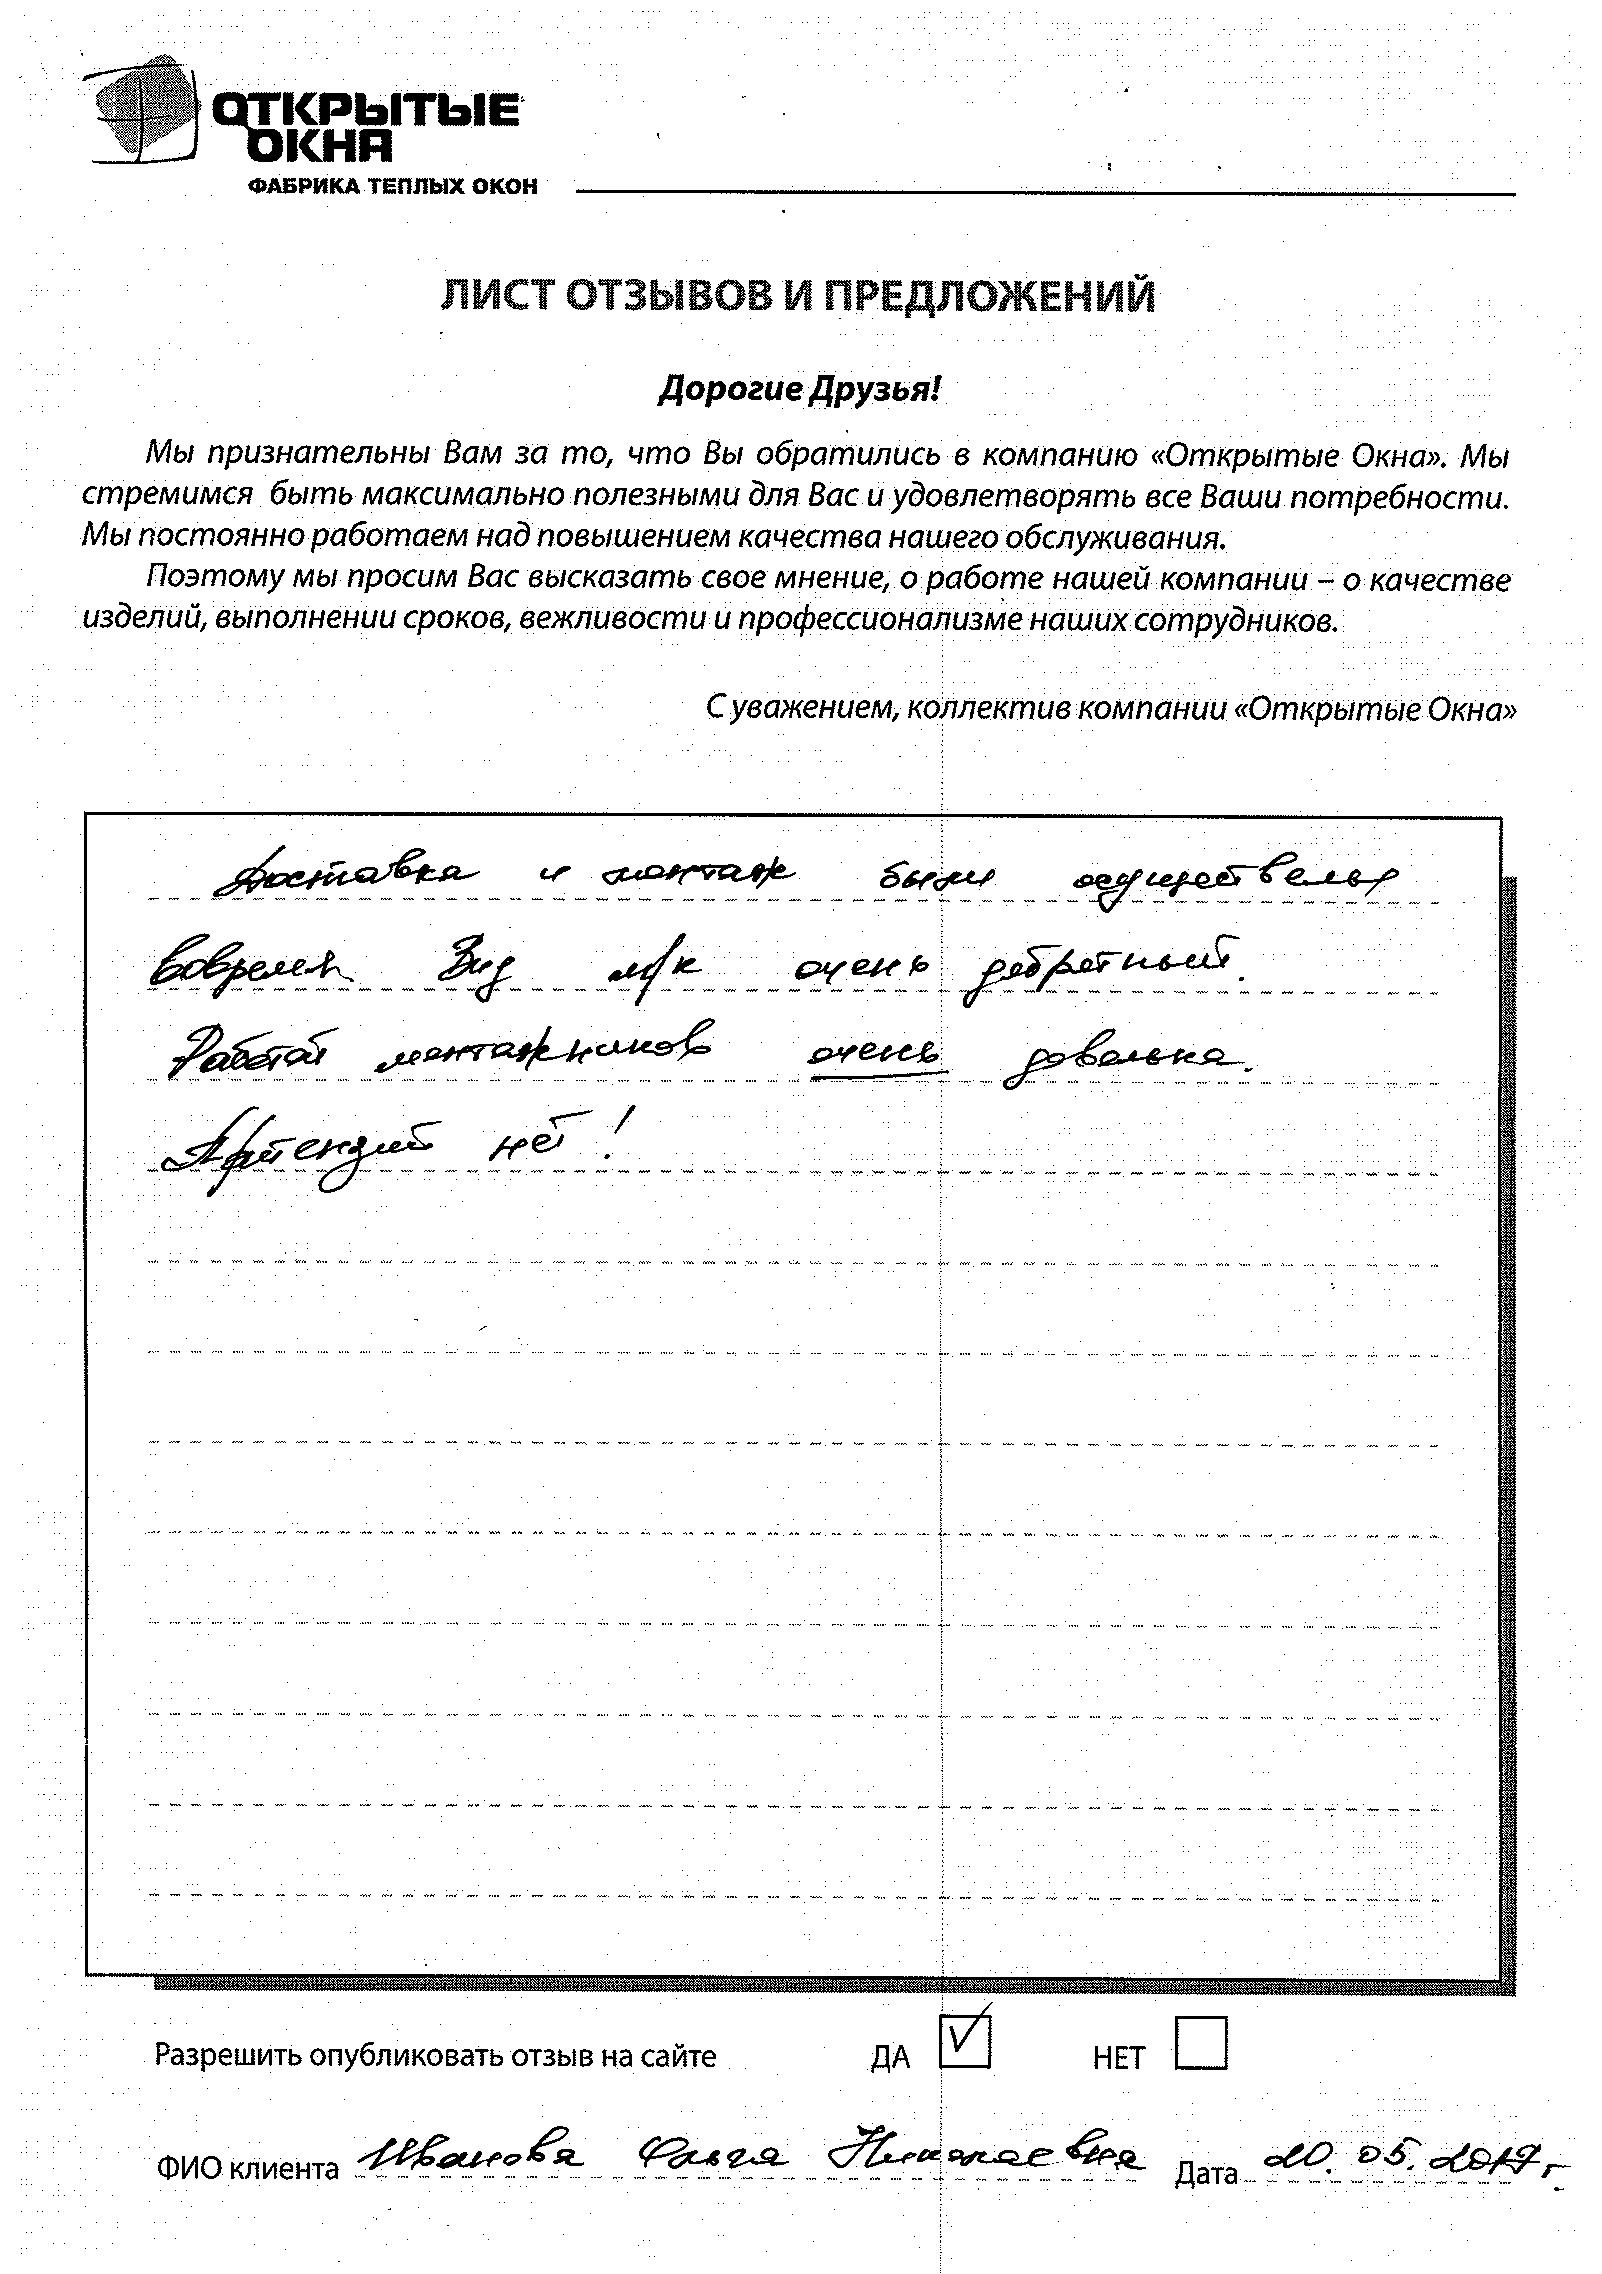 ОТКРЫТЫЕ
ОКНА
ФАБРИКА ТЕПЛЫХ ОКОН
ЛИСТ ОТЗЫВОВ И ПРЕДЛОЖЕНИЙ
Дорогие Друзья!
Мы признательны Вам за то, что Вы обратились в компанию «Открытые Окна». Мы
стремимся быть максимально полезными для Вас и удовлетворять все Ваши потребности.
Мы постоянно работаем над повышением качества нашего обслуживания.
Поэтому мы просим Вас высказать свое мнение, о работе нашей компании – о качестве
изделий, выполнении сроков, вежливости и профессионализме наших сотрудников.
С уважением, коллектив компании «Открытые Окна»
Доставка и монтаж были
вовремя Вид м/к очень
Работой монтажников очень довольна.
Притензий нет!
Разрешить опубликовать отзыв на сайте ДА НЕТ
ФИО клиента Иванова Ольга Николаевна Дата 20.05.2017г.